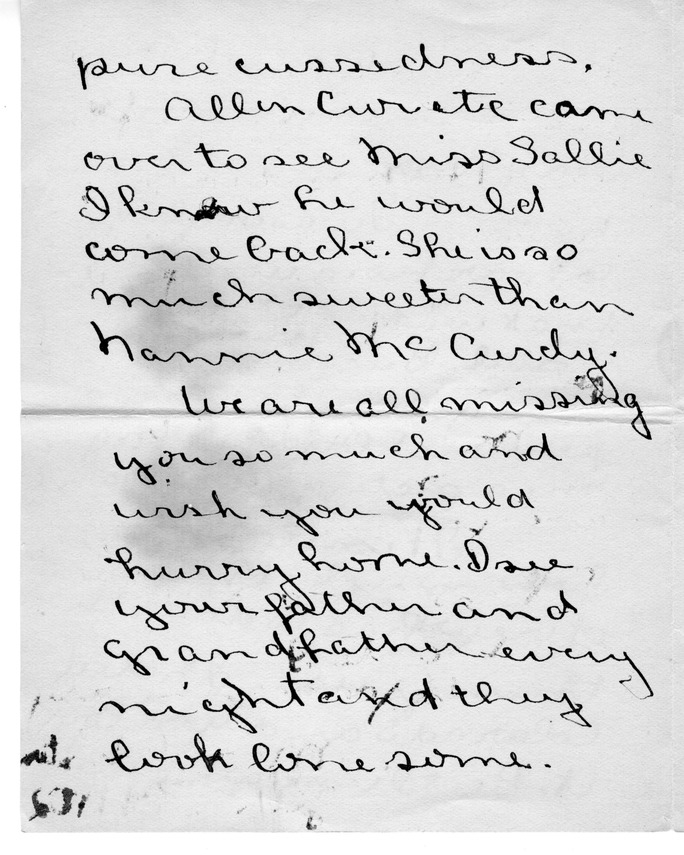 pure cussedness.
Allen came
over to see Miss Sallie
I know he would
come back. She is so
much sweeter than
Nannie Mc Curdy.
We are all missing
you so much and
wish you would
hurry home. I see
your father and
grandfather every
night and they
look lonesome.